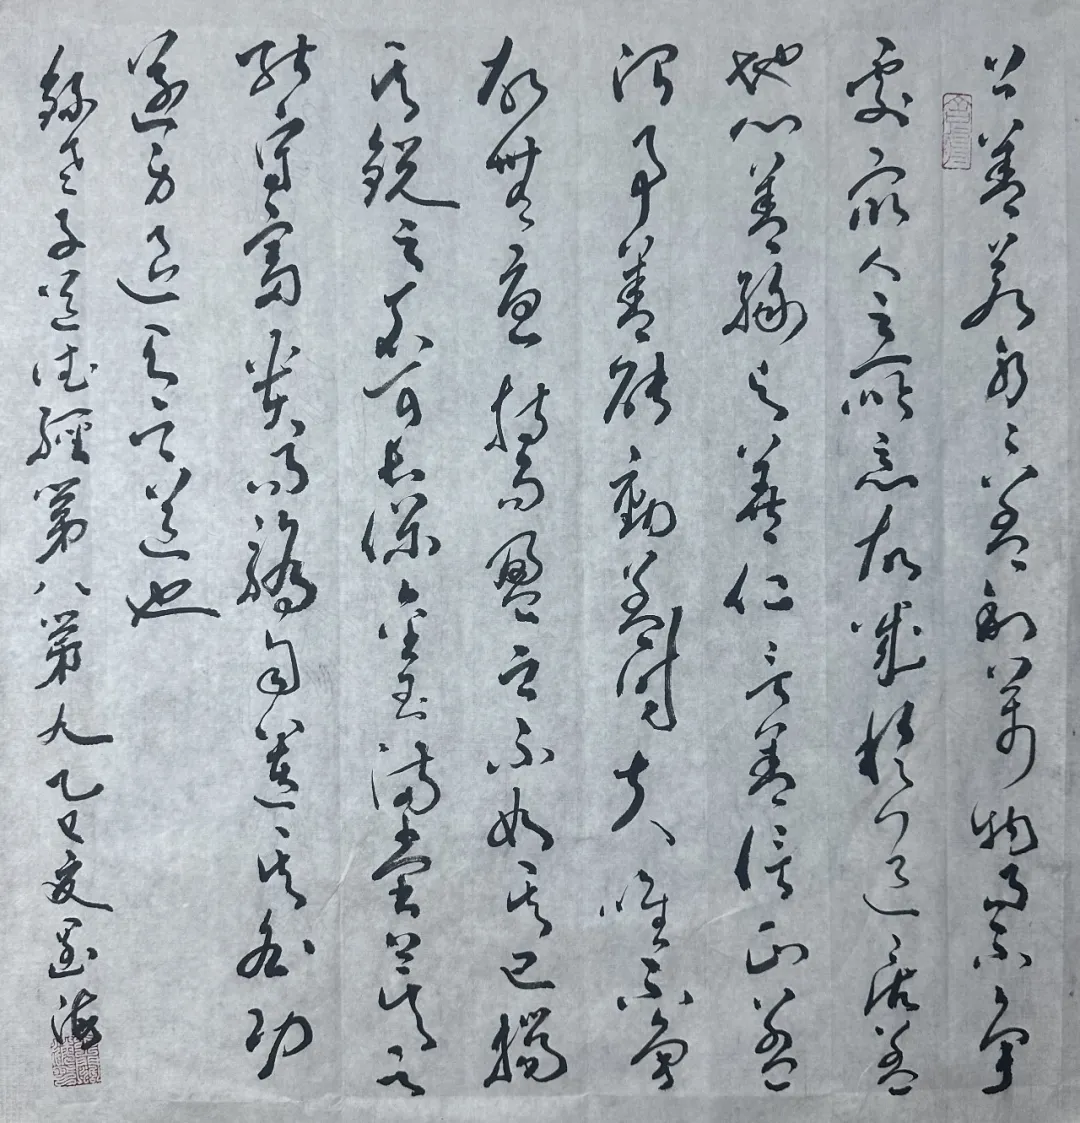 上善若水〻善利萬物而不爭
處眾人之所惡故幾於道居善
地心善淵與善仁言善信正善
治事善能動善時夫唯不爭
故無持而盈之不如其已揣
銳之不可長保金玉滿堂莫之
能守富貴而驕自遺其咎功
遂身退天之道也
錄老子道德經第八第九乙巳夏海